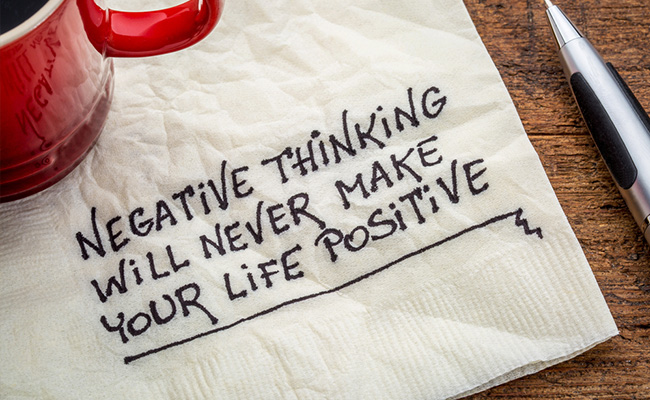 NEGATIVE THINKING
WILL NEVER MAKE
YOUR LIFE POSITIVE